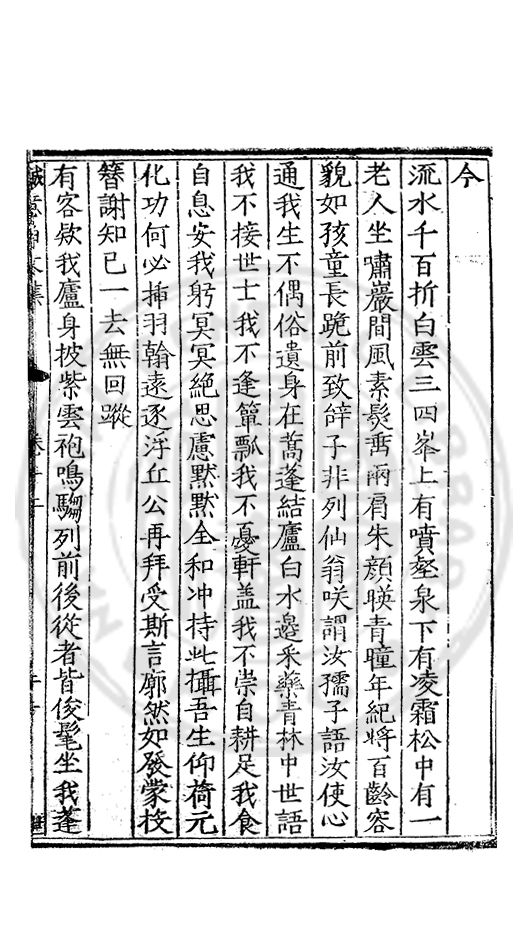 今
流水千百折白雲三四峯上有噴壑泉下有凌霜松中有一
老人坐嘯巖間風素髮垂兩肩朱顏暎青瞳年紀將百齡容
貌如孩童長跪前致辝子非列仙翁咲謂汝孺子語汝使心
通我生不偶俗遺身在蒿蓬結廬白水邉采藥青林中世語
我不接世士我不逢簞瓢我不憂軒盖我不崇自耕足我食
自息安我躬冥冥絕思慮默默全和冲持此攝吾生仰荷元
化功何必揷羽翰遠逐浮丘公再拜受斯言廓然如發蒙投
簪謝知已一去無回蹤
有客欵我廬身披紫雲袍鳴騶列前後從者皆俊髦坐我蓬
誠意伯文集